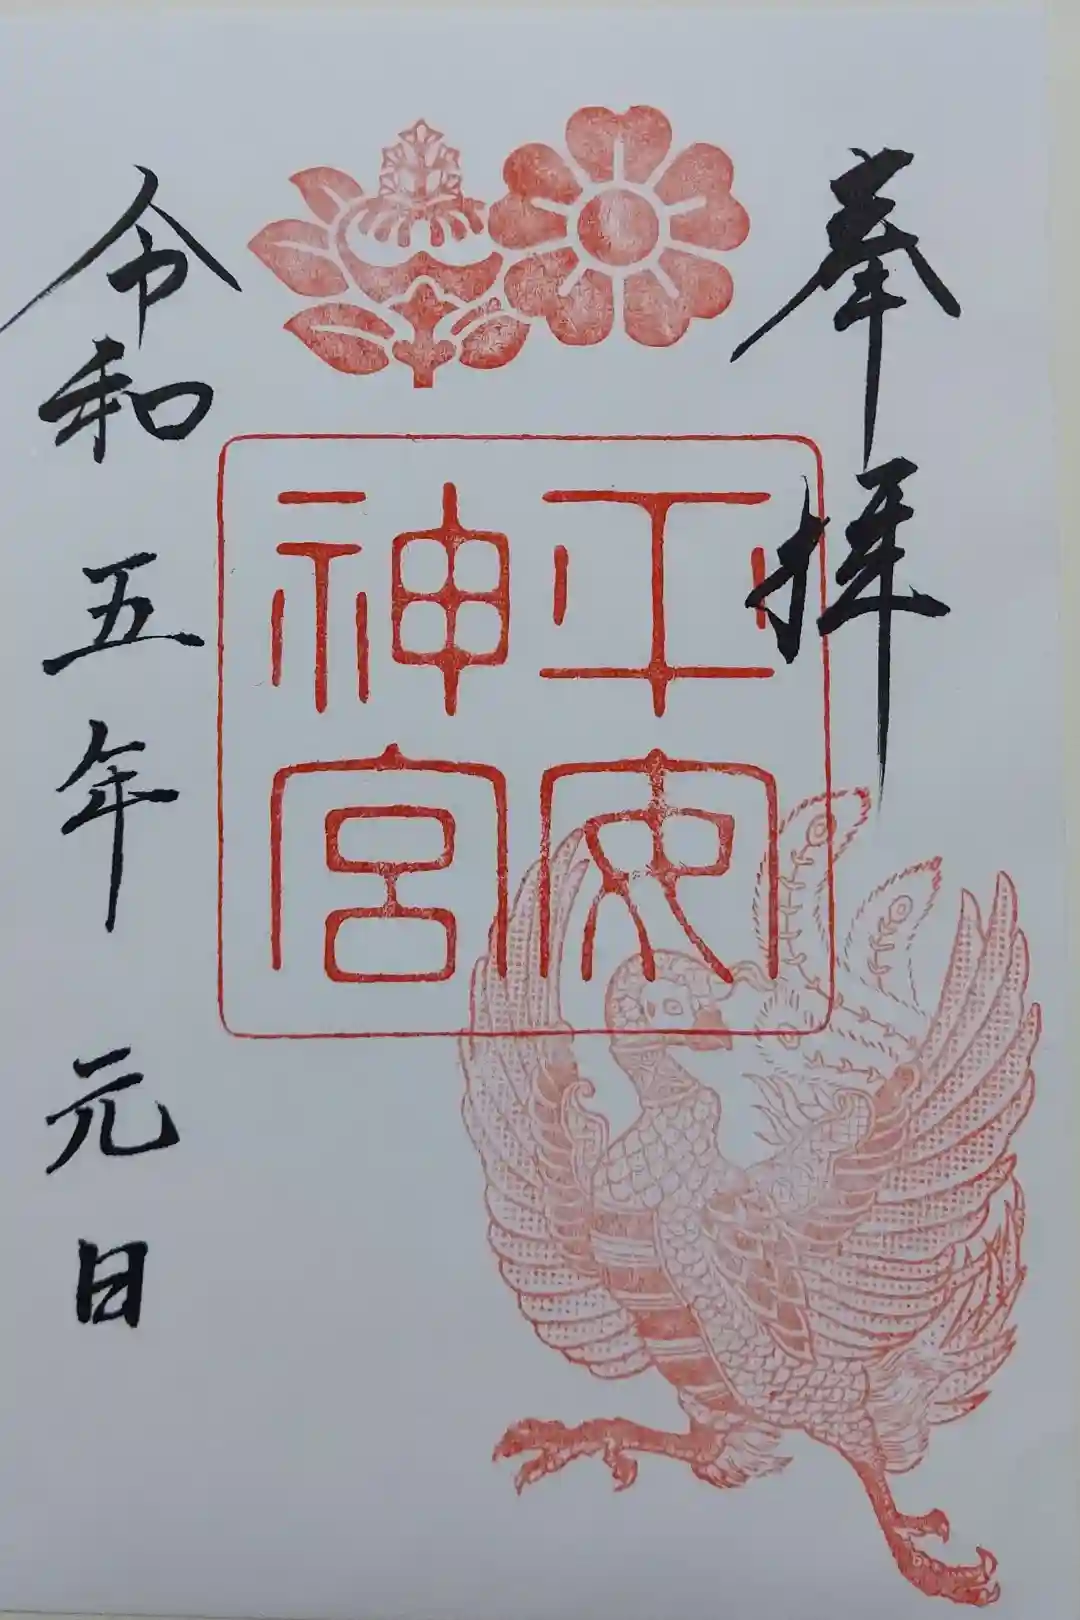 奉拝
平安
神宮
令和五年元日